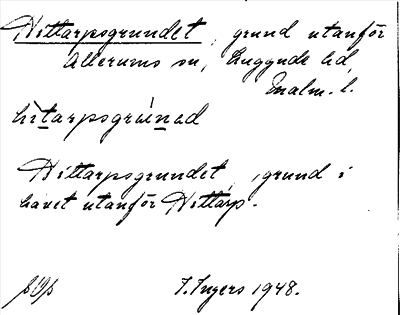 Hittarpsgrundet, grund utanför
Allerums sn, Luggude hd,
Malm. l.
hìtarpsgrúnad
Hittarpsgrundet, grund i
havet utanför Hittarp.
I. Ingers 1948.